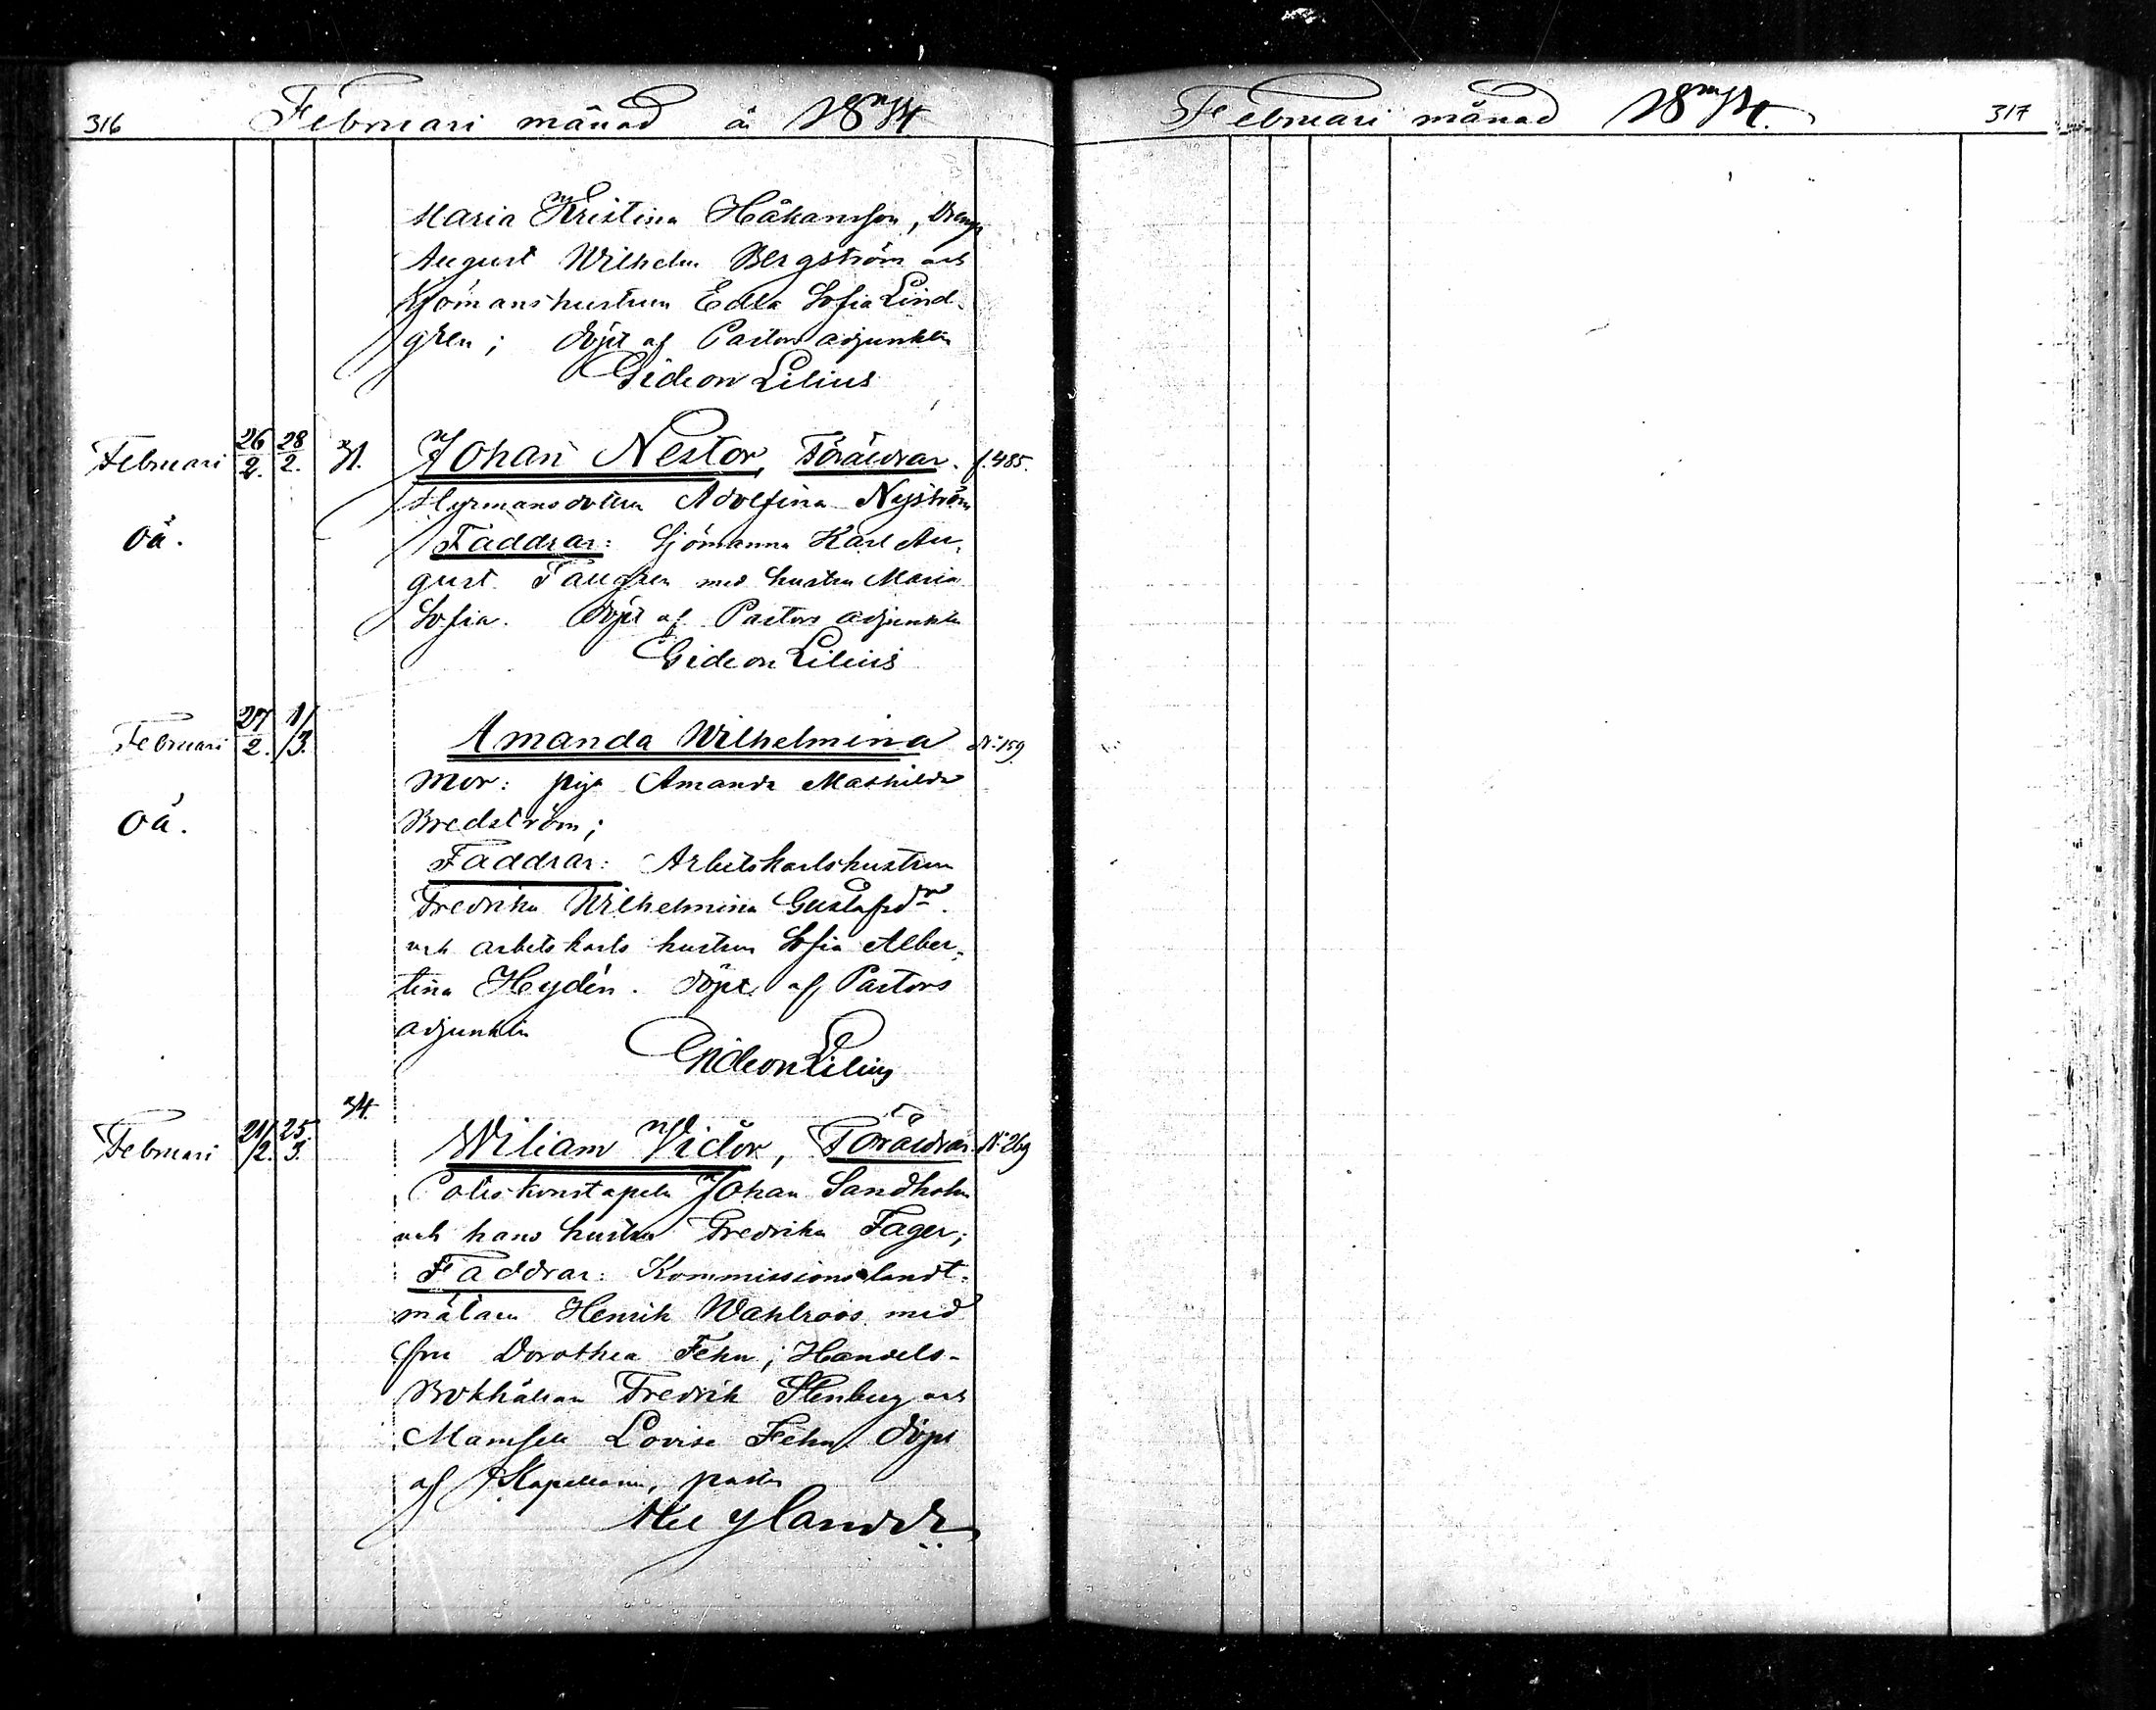 316 Februari månad år 1874
Maria Kristina Håkansson, Dreng
August Wilhelm Bergström och
Sjömanshustrun Edla Sofia Lind-
gren; döpt af Pastors adjunkten
Gideon Lilius
Februari 26/2. 28/2. 31. Johan Nestor, Föräldrar. f. 485.
Styrmansdottren Adolfina Nyström
oä. Faddrar: Sjömannen Karl Au-
gust med hustru Maria
Sofia. Döpt af Pastors adjunkten
Gideon Lilius
Februari 27/2. 1/3. Amanda Wilhelmina No 159
Mor: piga Amanda Mathilda
oä. Bredström;
Faddrar: Arbetskarlshustrun
Fredrika Wilhelmina Gustafsdr.
och arbetskarls hustrun Sofia Alber-
tina Heydén. Döpt af Pastors
adjunkten
Gideon Lilius
34.
Februari 21/2. 25/3. Wiliam Victor, Föräldrar No 269
Poliskonstapeln Johan Sandholm
och hans hustru Fredrika Fager;
Faddrar: Kommissionslandt-
mätaren Henrik Wahlroos med
fru Dorothea Fehn; Handels-
Bokhållaren Fredrik Stenberg och
Mamsell Lovisa Fehn. Döpt
af Kapellanen, pastor
Februari månad 1874. 317